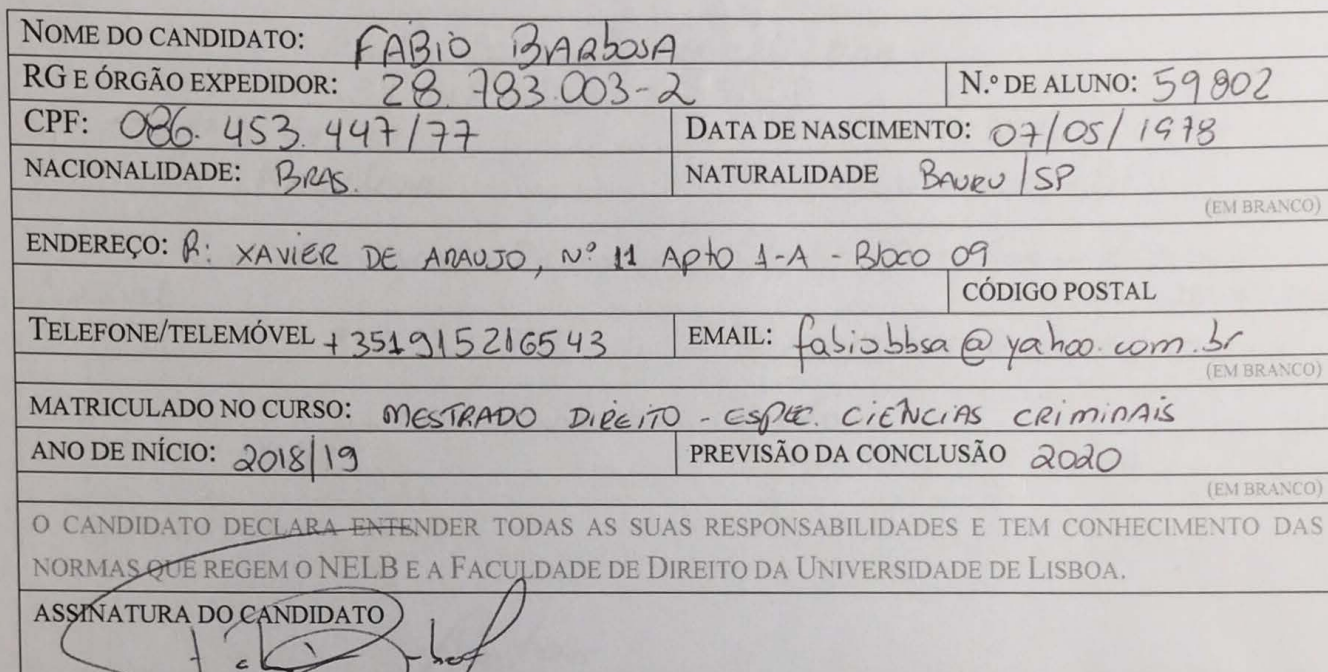 NOME DO CANDIDATO: FABIO BARBOSA
RG E ÓRGÃO EXPEDIDOR: 28.783.003-2 N.º DE ALUNO: 59802
CPF: 086.453.447/77 DATA DE NASCIMENTO: 07/05/1978
NACIONALIDADE: BRAS. NATURALIDADE BAURU/SP
(EM BRANCO)
ENDEREÇO: R: XAVIER DE ARAUJO, Nº 11 Apto 1-A - Bloco 09
CÓDIGO POSTAL
TELEFONE/TELEMÓVEL +351915216543 EMAIL: fabiobbsa@yahoo.com.br
(EM BRANCO)
MATRICULADO NO CURSO: MESTRADO DIREITO - ESPEC. CIÊNCIAS CRIMINAIS
ANO DE INÍCIO: 2018/19 PREVISÃO DA CONCLUSÃO 2020
(EM BRANCO)
O CANDIDATO DECLARA ENTENDER TODAS AS SUAS RESPONSABILIDADES E TEM CONHECIMENTO DAS
NORMAS QUE REGEM O NELB E A FACULDADE DE DIREITO DA UNIVERSIDADE DE LISBOA.
ASSINATURA DO CANDIDATO